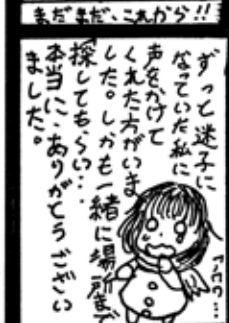 まだまだ、これから!!
ずっと迷子に
なっていた私に
声をかけて
くれた方がいま
した。しかも一緒に場所まで
探してもらい…
本当に、ありがとうござい
ました。
うわつ…